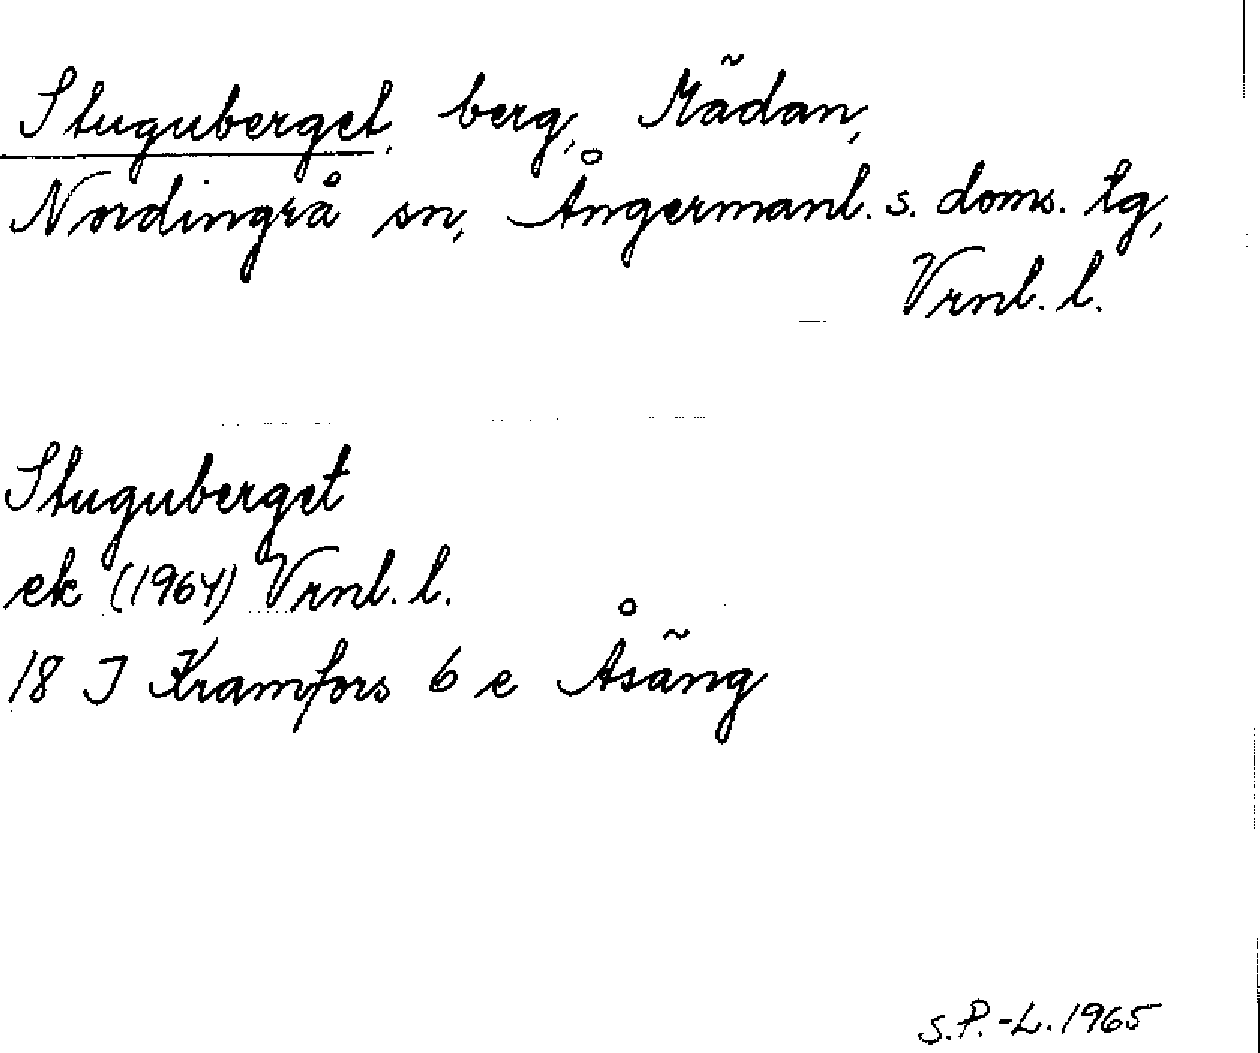 Stuguberget, berg, Mädan,
Nordingrå sn, Ångermanl. s. doms. tg,
Vrnl. l.
Stuguberget
ek (1964) Vrnl. l.
18 J Kramfors 6 e Åsäng
S.P.-L. 1965